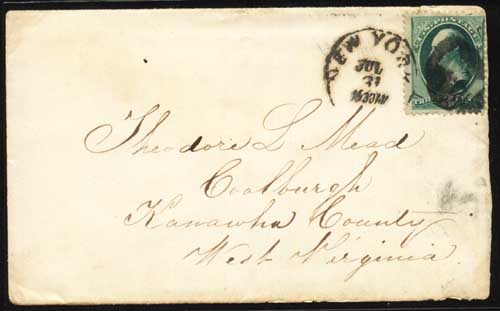 NEW YORK
JUL
31
Theodore L Mead
Coalburgh
Kanawha County
West Virginia